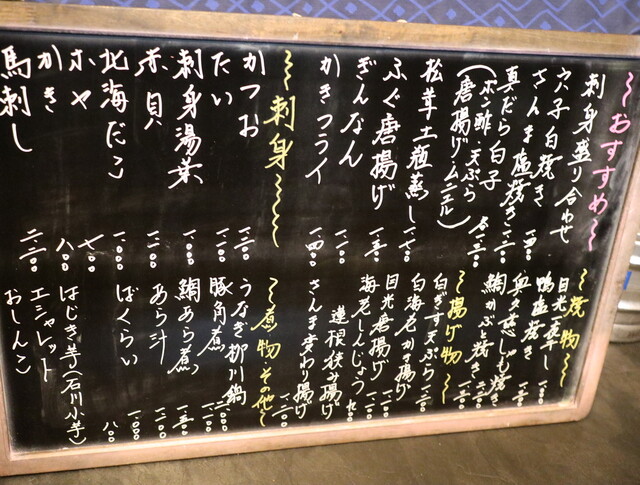 〜おすすめ〜
刺身盛り合わせ
穴子白焼き
さんま塩焼き 一、四〇〇
真だら白子
(ポン酢・天ぷら
唐揚げ・ムニエル) 各一、三〇〇
松茸土瓶蒸し 一、七〇〇
ふぐ唐揚げ 一、五〇〇
ぎんなん 一、一〇〇
かきフライ 一、四〇〇
〜刺身〜
かつお 一、三〇〇
たい 一、二〇〇
刺身湯葉 一、一〇〇
赤貝
北海だこ 一、〇〇〇
ホヤ 七〇〇
かき 八〇〇
馬刺し 二、二〇〇
〜焼物〜
鴨塩焼き 一、〇〇〇
鯛かぶと焼き
〜揚げ物〜
白ぎす天ぷら 一、二〇〇
白海老かき揚げ
目光唐揚げ
海老しんじょう
蓮根挟み揚げ 九〇〇
さんま変わり揚げ
〜煮物・その他〜
うなぎ柳川鍋
豚角煮
鯛あら煮 一、五〇〇
あら汁
ばくらい 一、〇〇〇
はじき芋(石川小芋) 八〇〇
エシャレット
おしんこ